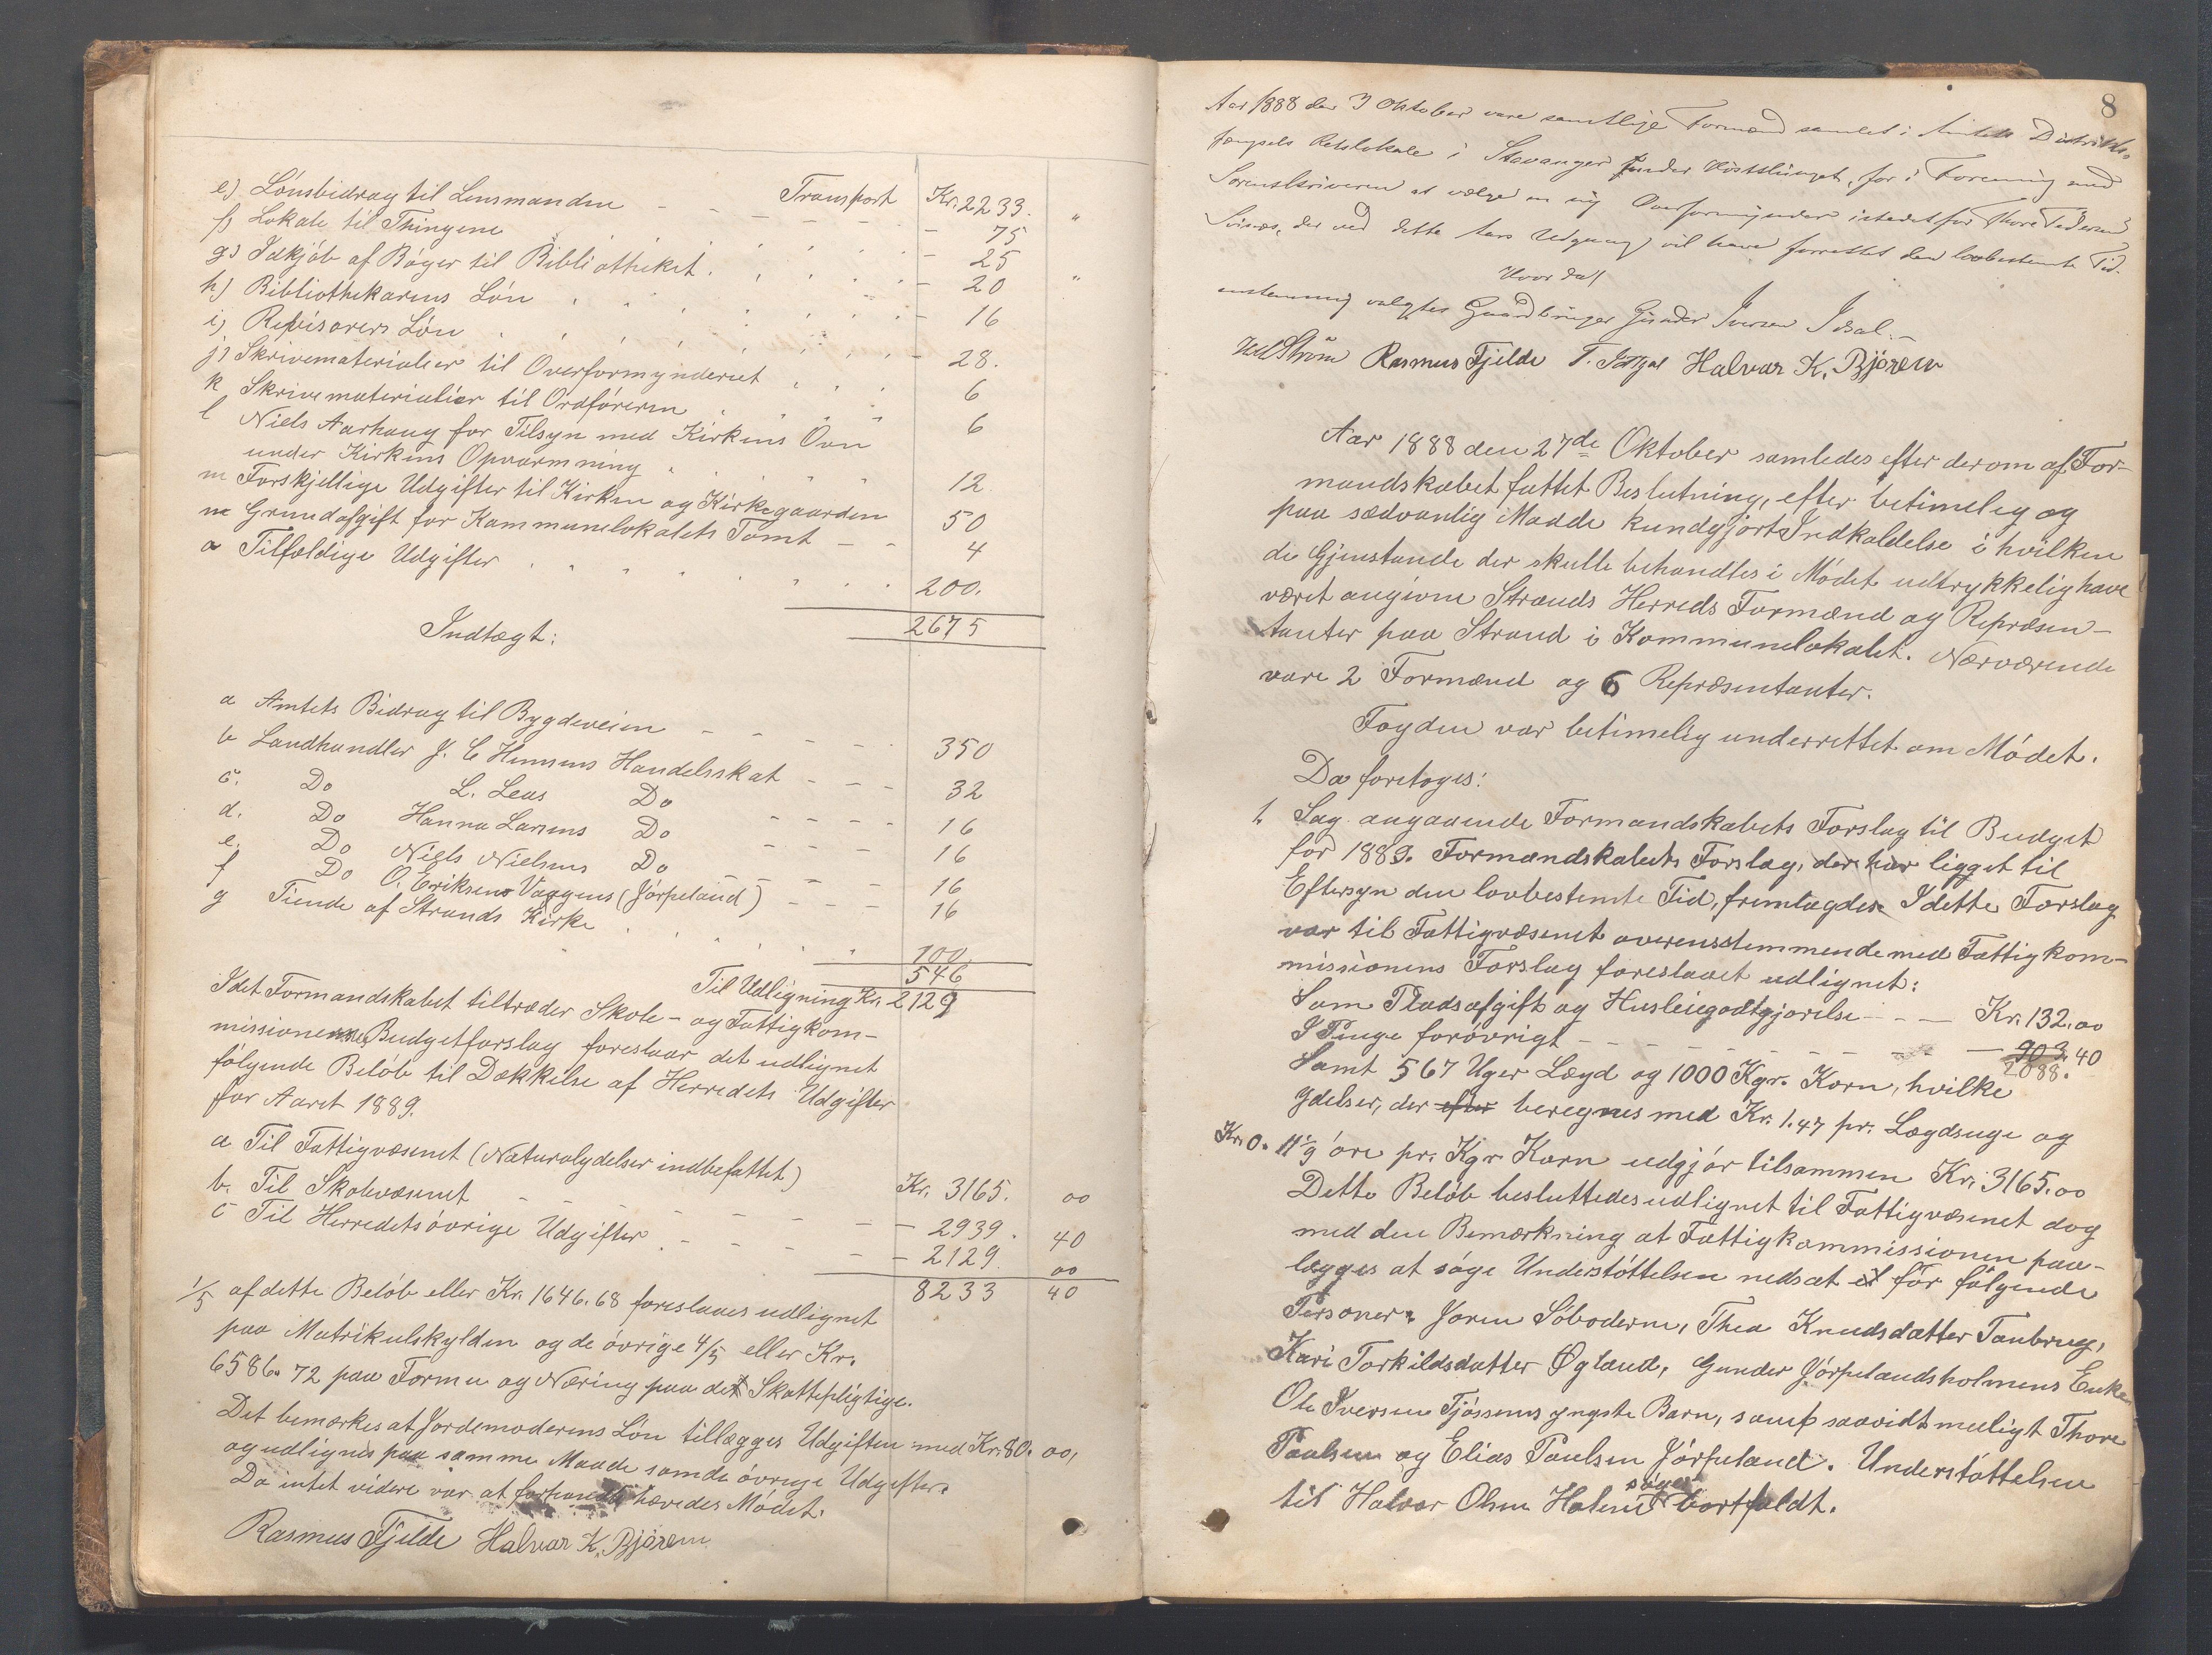 Transport Kr. 2233. "
e) Lönsbidrag til Lensmanden - - - - - 75
f) Lokale til Thingene - 25
g) Indkjöb af Böger til Bibliotheket - 20 "
h) Bibliothekarens Lön - 16
i) Revisorers Lön - 28.
j) Skrivematerialier til Overformynderiet 6
k Skrivematerialier til Ordföreren 6
l Niels Aarhaug for Tilsyn med Kirkens Ovn
under Kirkens Opvarmning 12
m Forskjellige Udgifter til Kirken og Kirkegaarden 50
n Grundafgift for Kommunelokalets Tomt - - 4
o Tilfældige Udgifter 200.
2675
Indtægt:
a Amtets Bidrag til Bygdeveien - - - - - 350
b Landhandler J. C Hensens Handelsskat - - - 32
c. Do L. Leas Do - - - - 16
d. Do Hanna Larsens Do - - - 16
e. Do Niels Nielsens Do - - - - 16
f Do O. Eriksens Vaagens (Jörpeland) - - - 16
g Tiende af Strands Kirke 100
546
Til Udligning Kr. 2129
Idet Formandskabet tiltræder Skole- og Fattigkom-
missionens Budgetforslag foreslaar det udlignet
fölgende Belöb til Dækkelse af Herredets Udgifter
for Aaret 1889.
a Til Fattigvæsenet (Naturalydelser indbefattet) Kr. 3165. 00
b. Til Skolevæsenet - - - - - - 2939. 40
c Til Herredets övrige Udgifter - - - - - 2129. 00
8233 40
1/5 af dette Belöb eller Kr. 1646.68 foreslaaes udlignet
paa Matrikulskylden og de övrige 4/5 eller Kr.
6586.72 paa Formue og Næring paa de Skattepligtige.
Det bemærkes at Jordemoderens Lön tillægges Udgiften med Kr. 80.00,
og udlignes paa samme Maade som de övrige Udgifter.
Da intet videre var at hævedes Mödet.
Rasmus Fjelde Halvar K. Bjørem
8
Aar 1888 den 3 Oktober vare samtlige Formænd samlet i Amtets Distrikts-
fængsels Retslokale i Stavanger under Höstthinget, for i Forening med
Sorenskriveren at vælge en ny Overformynder istedetfor Thore Pedersen
Svines, der ved dette Aars Udgang vil have forrettet den lovbestemte Tid.
Hvorda
enstemmig valgtes Gaardbruger Gunder Iversen Idsal.-
Rasmus Fjelde T. Halvar K. Bjørem
Aar 1888 den 27de Oktober samledes efter derom af For-
mandskabet fattet Beslutning, efter betimelig og
paa sædvanlig Maade kundgjort Indkaldelse i hvilken
de Gjenstande der skulle behandles i Mödet udtrykkelig have
været angivne Strands Herreds Formænd og Repræsen-
tanter paa Strand i Kommunelokalet. Nærværende
vare 2 Formænd og 6 Repræsentanter.
Fogden var betimelig underrettet om Mödet.
Da foretoges:
1. Sag angaaende Formandskabets Forslag til Budget
for 1889. Formandskabets Forslag, der har ligget til
Eftersyn den lovbestemte Tid, fremlagdes. I dette Forslag
var til Fattigvæsenet overensstemmende med Fattigkom-
missionens Forslag foreslaaet udlignet:
Som Pladsafgift og Husleiegodtgjörelse - - - Kr. 132.00
I Penge forövrigt - - - - - - - - 903.40
2088.
Samt 567 Uger Lægd og 1000 Kgr. Korn, hvilke
Ydelser, der efter beregnes med Kr. 1.47 pr. Lægdsuge og
Kr. 0. 11 1/9 öre pr. Kgr Korn udgjör tilsammen Kr. 3165.00
Dette Belöb besluttedes udlignet til Fattigvæsenet dog
med den Bemærkning at Fattigkommissionen paa-
lægges at söge Understöttelsen nedsat for fölgende
Personer: Joren Söboderne, Thea Knudsdatter Taubrug,
Kari Torkildsdatter Øgland, Gunder Jörpelandsholmens Enke
Ole Iversen Fjössens yngste Barn, samt saavidt muligt Thore
Paulsen og Elias Paulsen Jörpeland. Understöttelsen
til Halvor Olsen Holene söges bortfaldt.